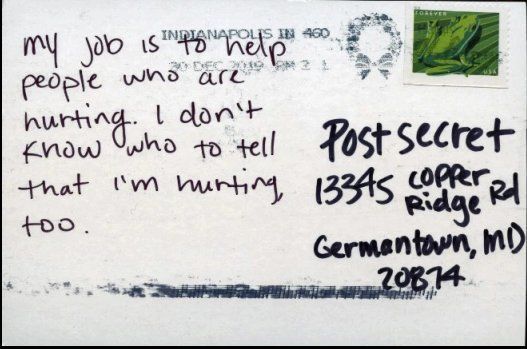 my job is to help
people who are
hurting. I don't
know who to tell
that I'm hurting,
too.
INDIANAPOLIS IN 460
30 DEC 2019 PM 2 L
FOREVER
USA
Postsecret
13345 copper
Ridge Rd
Germantown, MD
20874